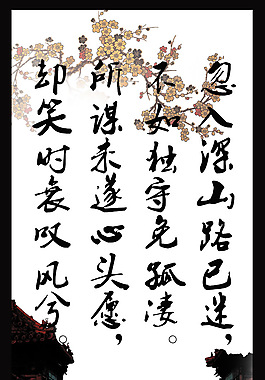 忽入深山路已迷，
不如独守免孤凄。
所谋未遂心头愿，
却笑时衰叹风兮。